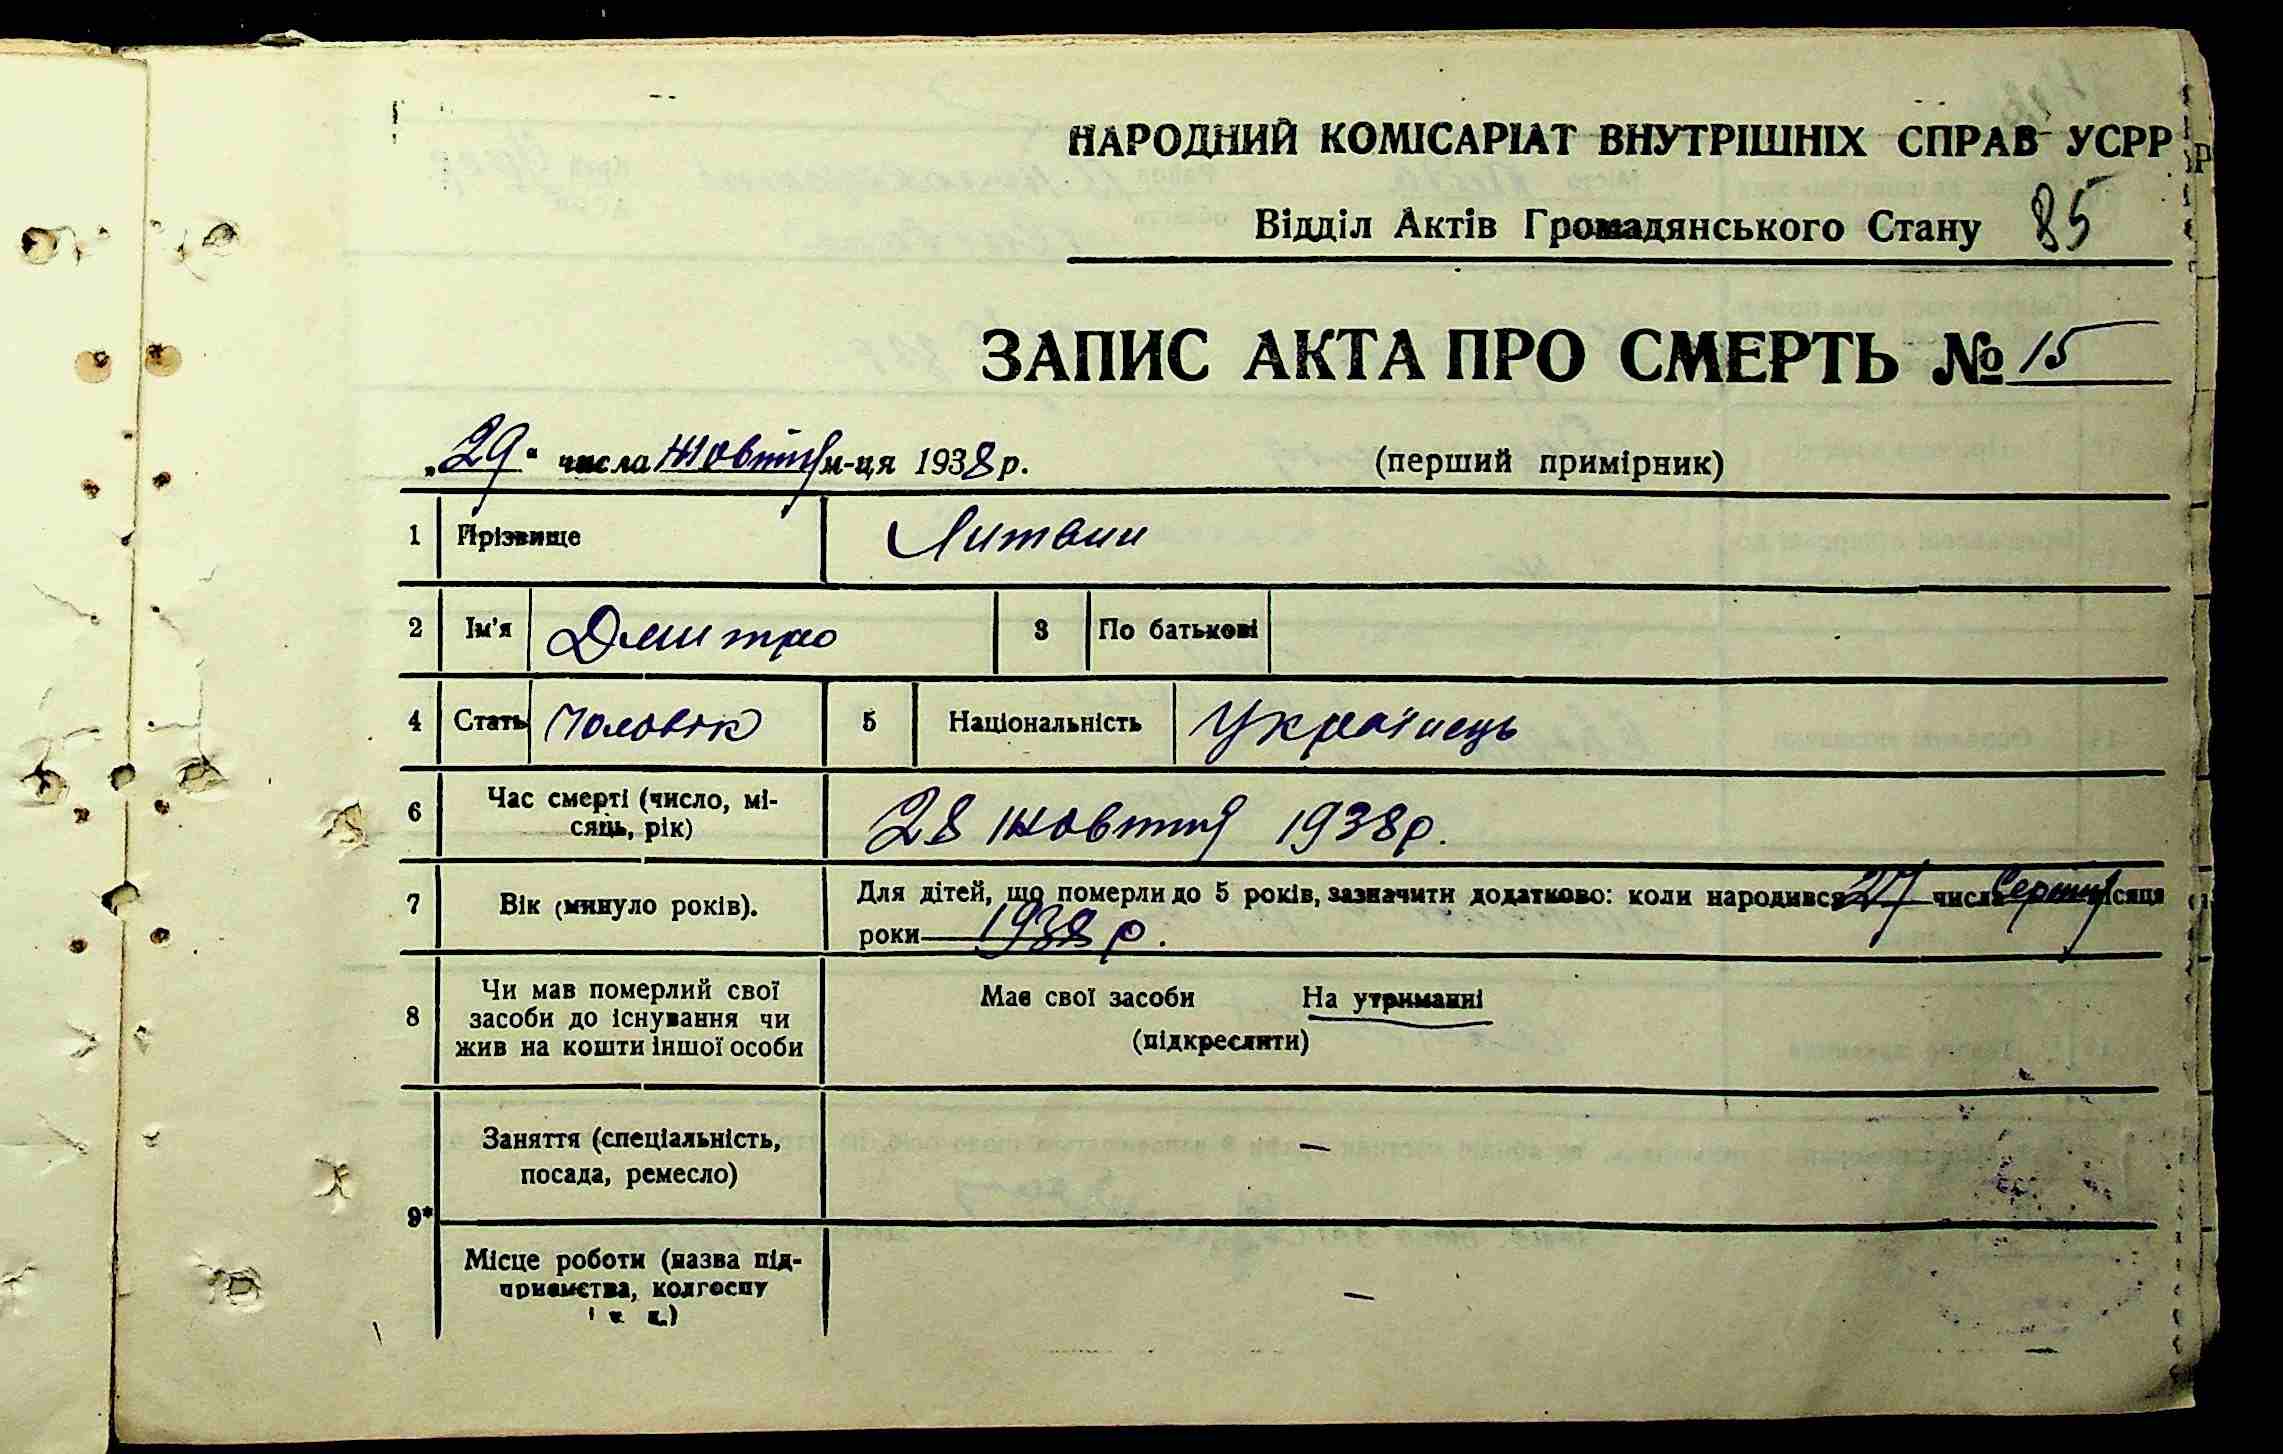 НАРОДНИЙ КОМІСАРІАТ ВНУТРІШНІХ СПРАВ УСРР
Відділ Актів Громадянського Стану 85
ЗАПИС АКТА ПРО СМЕРТЬ № 15
„29“ числа жовтня м-ця 1938 р. (перший примірник)
1 Прізвище Литвин
2 Ім'я Дмитро 3 По батькові
4 Стать Чоловік 5 Національність Українець
6 Час смерті (число, мі-
сяць, рік) 28 жовтня 1938 р.
7 Вік (минуло років). Для дітей, що померли до 5 років, зазначити додатково: коли народився 27 числа серпня місяця
роки 1938 р.
8 Чи мав померлий свої
засоби до існування чи
жив на кошти іншої особи
Має свої засоби На утриманні
(підкреслити)
9* Заняття (спеціальність,
посада, ремесло) —
Місце роботи (назва під-
приємства, колгоспу
і т. д.) —